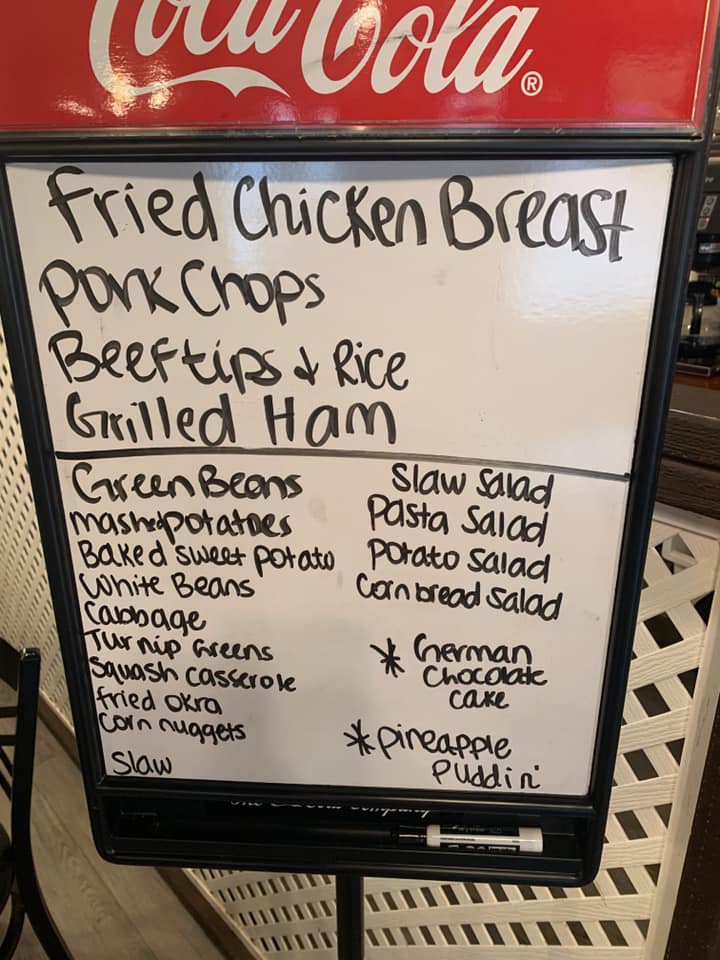 Coca Cola®
Fried Chicken Breast
Pork Chops
Beef tips & Rice
Grilled Ham
Green Beans
mashed potatoes
Baked sweet potato
White Beans
Cabbage
Turnip Greens
Squash casserole
fried okra
Corn nuggets
Slaw
Slaw Salad
Pasta Salad
Potato Salad
Cornbread Salad
* German
Chocolate
cake
* pineapple
Puddin'